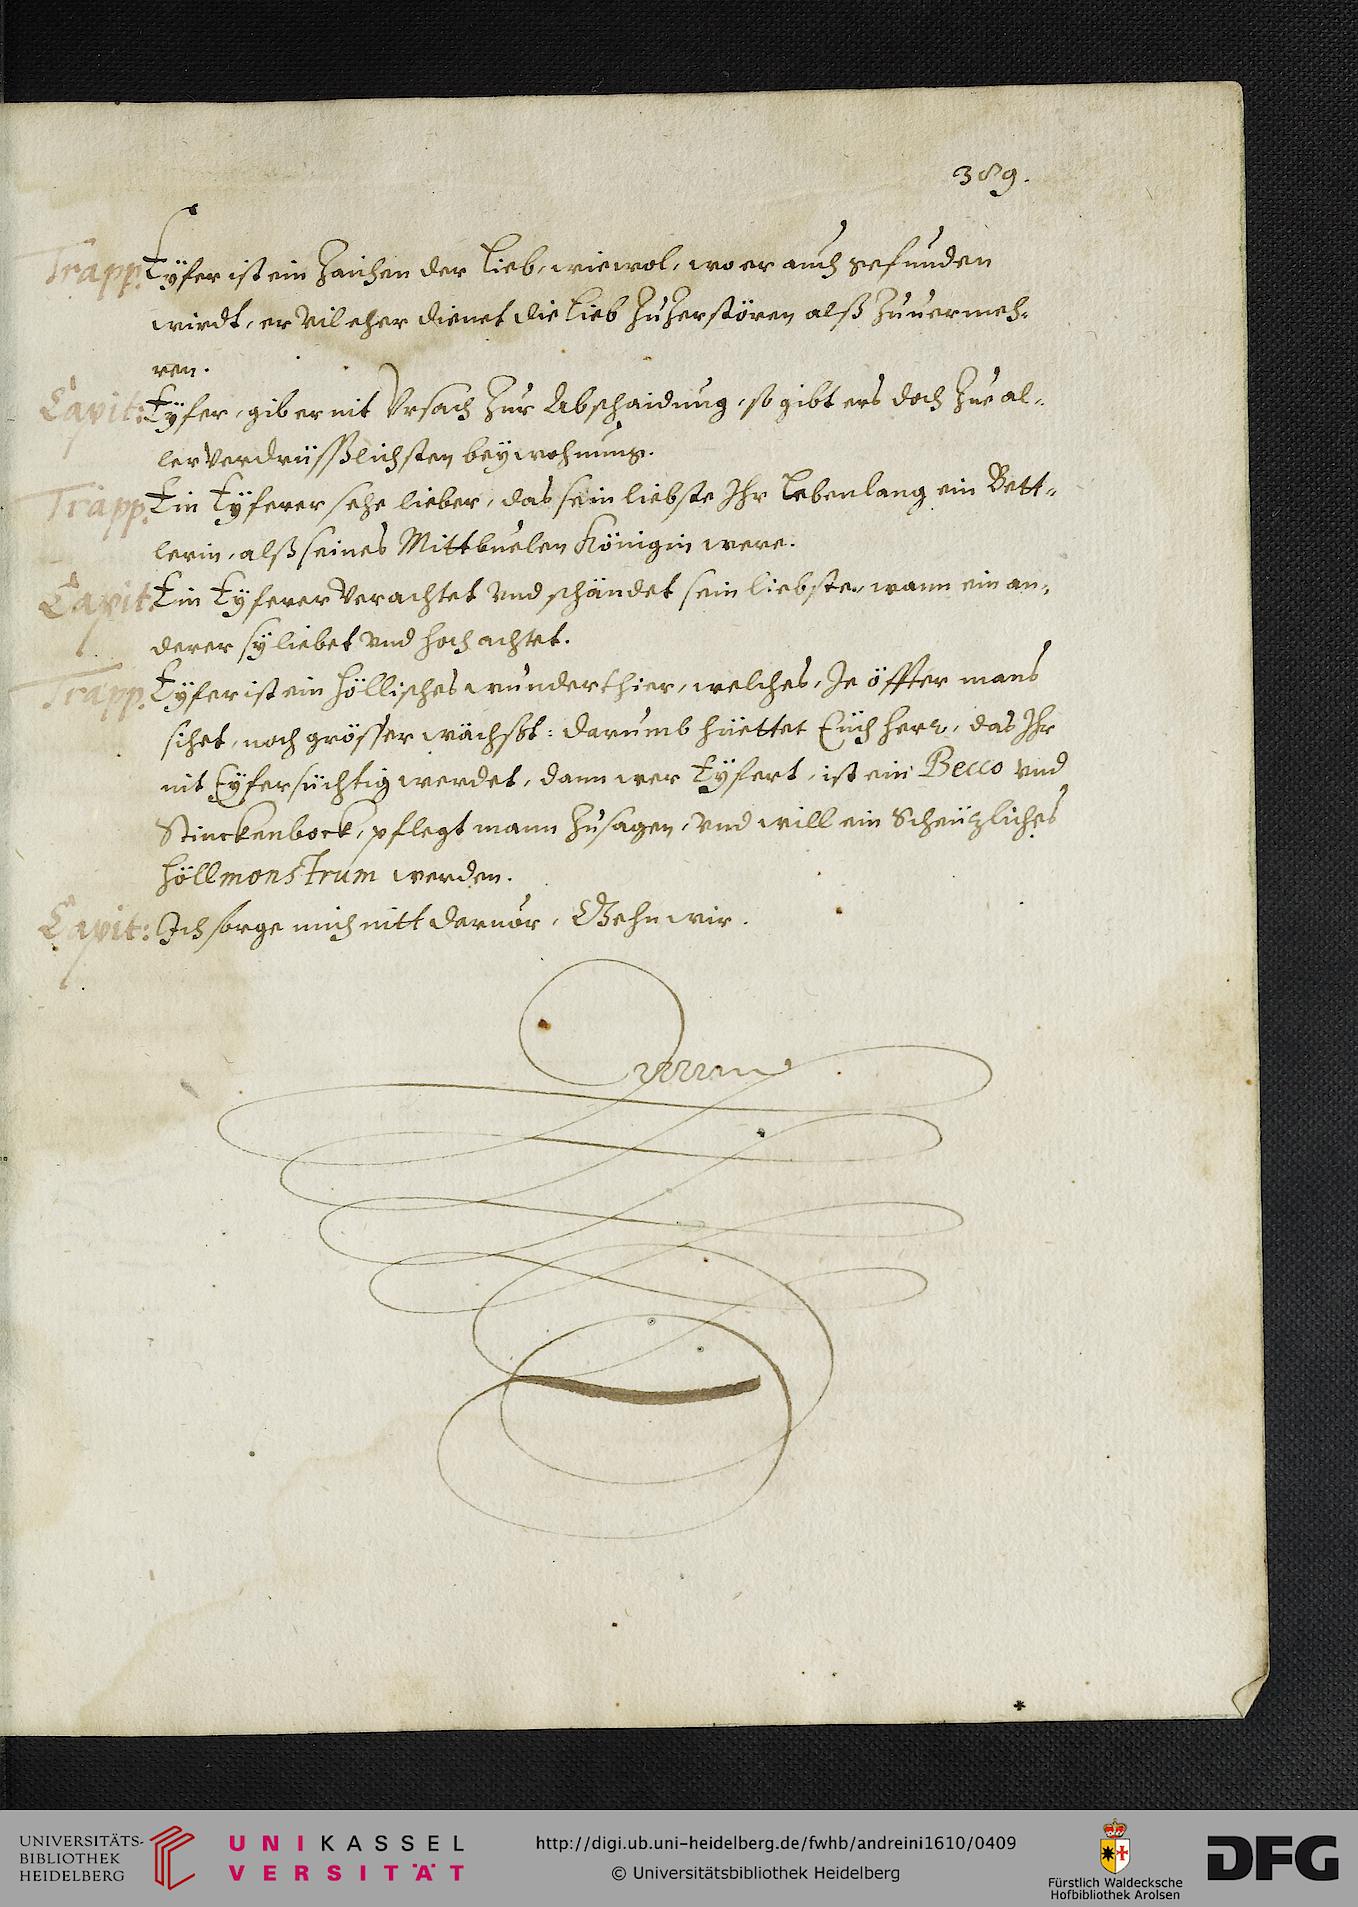 389.
Trapp: Eÿfer ist ein Zaichen der Lieb, wiewol, wo er auch gefunden
wirdt, er vil eher dienet die Lieb zuzerstören alß zuuermeh-
ren.
Capit: Eÿfer, gib er nit Vrsach zur Abschaidung, so gibt ers doch zue al-
ler verdrüßlichsten beÿwohnung.
Trapp: Ein Eÿferer sehe lieber, das sein liebste Ihr Lebenlang ein Bett-
lerin, alß seines Mittbuelen Königin were.
Capit: Ein Eÿferer verachtet vnd schändet sein liebste, wann ein an-
derer sÿ liebet vnd hoch achtet.
Trapp: Eÿfer ist ein höllisches wunderthier, welches, Je öffter mans
sihet, noch grösser wächßt: darumb hüettet Euch herr, das Ihr
nit Eÿfersüchtig werdet, dann wer Eÿfert, ist ein Becco vnd
Stinckenbock, pflegt mann zusagen, vnd will ein Scheützliches
höllmonstrum werden.
Capit: Ich sorge mich nitt daruor, Gehn wir.
UNIVERSITÄTS-
BIBLIOTHEK
HEIDELBERG
UNIKASSEL
VERSITÄT
http://digi.ub.uni-heidelberg.de/fwhb/andreini1610/0409
© Universitätsbibliothek Heidelberg
Fürstlich Waldecksche
Hofbibliothek Arolsen
DFG